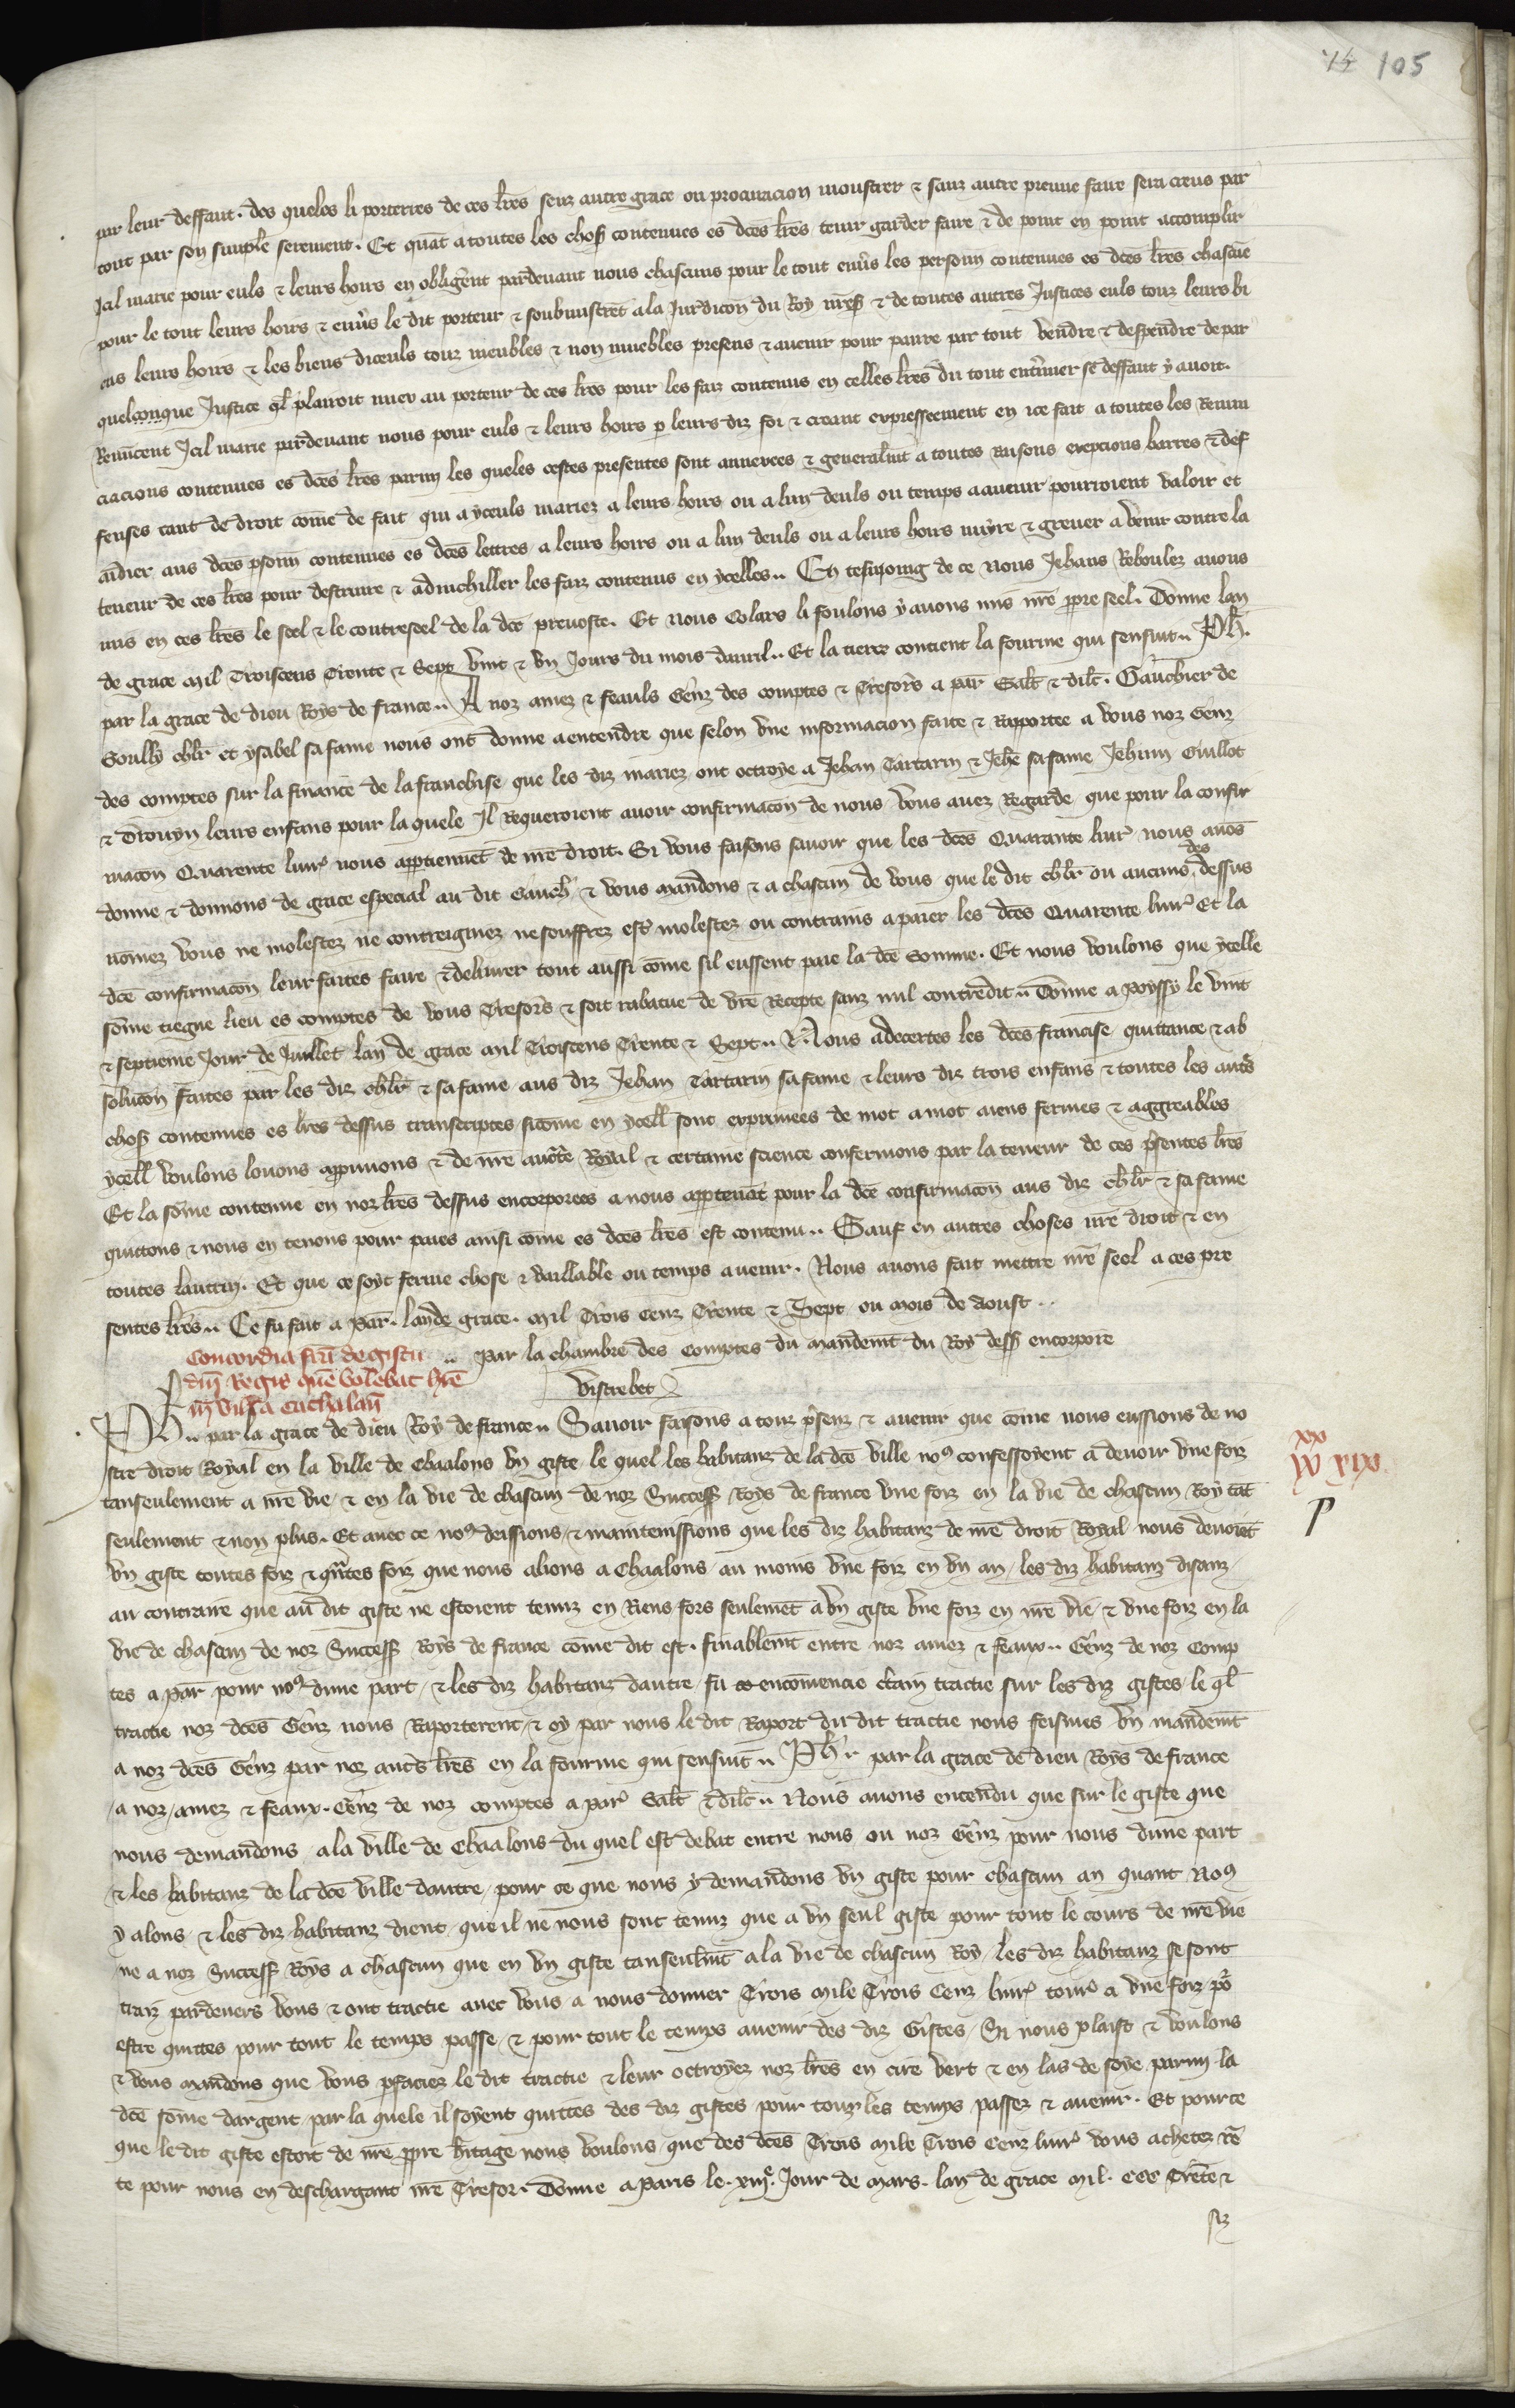 105
par leur deffaut. des queles li porterres de ces lres senz autre grace ou procuracion moustrer & sanz autre preuue faire sera creus par
tout par son simple serement. Et quāt a toutes les choses contenues es dces lres tenir garder faire & de point en point accomplir
Icil marie pour euls & leurs hoirs en obligent pardeuant nous chascuns pour le tout enuers les personn contenues es dces lres chascune
pour le tout leurs hoirs & enuers le dit porteur & soubmistrent a la Juridicon du Roy nres & de toutes autres Justices euls touz leurs bi
ens leurs hoirs & les biens diceuls touz meubles & non muebles presens & auenir pour panre par tout vendre & despendre de par
quelconque Justice ql plairoit miex au porteur de ces lres pour les faiz contenus en celles lres du tout enteriner se deffaut y auoit.
Renuncent Icil marie pardeuant nous pour euls & leurs hoirs p leurs diz foi & creant expresseement en ice fait a toutes les Renun
ciacions contenues es dces lres parmi les queles cestes presentes sont annexees & generalmt a toutes Raisons excepcions barres & def
fenses tant de droit come de fait qui a yceuls mariez a leurs hoirs ou a lun deuls ou temps aauenir pourroient valoir et
aidier aus dces psonn contenues es dces lettres a leurs hoirs ou a lun deuls ou a leurs hoirs nuyre & greuer a venir contre la
teneur de ces lres pour destruire & adnichiller les faiz contenus en ycelles.. En tesmoing de ce Nous Jehans Reboulez auons
mis en ces lres le seel & le contreseel de la dce preuoste. Et Nous Colars li foulons y auons mis nre ppre seel. Donne lan
de grace mil Troiscens Trente & Sept vint & vn Jours du mois dauril.. Et la tierce contient la fourme qui sensuit.. Ph.
par la grace de dieu Roys de france.. A noz amez & feauls Genz des comptes & Tresors a par Salt & dilt. Gauchier de
Soully chlr et ysabel sa fame nous ont donne a entendre que selon vne informacion faite & Raportee a vous noz Genz
des comptes sur la finance de la franchise que les diz mariez ont octroye a Jehan Tartarin & Jehe sa fame Jehnin Guillot
& Drouyn leurs enfans pour la quele Il Requeroient auoir confirmacon de nous vous auez Regarde que pour la confir
macon Quarente liur nous apptiennent de nre droit. Si vous faisons sauoir que les dces Quarante liur nous auos
donne & donnons de grace especial au dit Gauch & vous mandons & a chascun de vous que le dit chlr ou aucuns des dessus
nomez vous ne molestez ne contreignez ne souffrez estre molestez ou contrains a paier les dces Quarente liur Et la
dce confirmacon leur faites faire & deliurer tout aussi come sil eussent paie la dce Somme. Et nous voulons que ycelle
some tiegne lieu es comptes de vous Tresors & soit rabatue de vre Recepte sanz nul contredit.. Donne a Poyssy le vint
& septieme Jour de Juillet lan de grace mil Troiscens Trente & Sept.. Nous adecertes les dces franchise quittance & ab
solucon faites par les diz chlr & sa fame aus diz Jehan Tartarin sa fame & leurs diz trois enfans & toutes les autres
choses contenues es lres dessus transcriptes sicome en ycell sont exprimees de mot a mot aiens fermes & aggreables
ycell voulons louons approuuons & de nre aucte Royal & certaine science confermons par la teneur de ces psentes lres
Et la some contenue en noz lres dessus encorporees a nous apptenāt pour la dce confirmacon aus diz chlr & sa fame
quittons & nous en tenons pour paies ainsi come es dces lres est contenu.. Sauf en autres choses nre droit & en
toutes lautrui. Et que ce soit ferme chose & vaillable ou temps auenir. Nous auons fait mettre nre seel a ces pre
sentes lres.. Ce fu fait a Par. lan de grace. mil Trois Cenz Trente & Sept ou Mois de Aoust..
.. Par la chambre des Comptes du mandemt du Roy dess encorpore
Vistrebet
Concordia sup de gistu
dni Regis que volebat hre
in villa cathalan
Ph.. par la grace de dieu Roy de france.. Sauoir faisons a touz psenz & auenir que come nous eussions de no
stre droit Royal en la ville de Chaalons vn giste le quel les habitanz de la dce ville nos confessoyent a deuoir vne foiz
tanseulement a nre vie & en la vie de chascun de noz Success Roys de france vne foiz en la vie de chascun Roy tāt
seulement & non plus. Et auec ce nos deissions & maintenissions que les diz habitanz de nre droit Royal nous deuoiēt
vn giste toutes foiz & qntes foiz que nous alions a Chaalons au moins vne foiz en vn an / les diz habitanz disanz
au contraire que au dit giste ne estoient tenuz en Riens fors seulemēt a vn giste vne foiz en nre vie & vne foiz en la
vie de chascun de noz Success Roys de france come dit est. finablemt entre noz amez & feaux.. Genz de noz Comp
tes a Par pour nos dune part / & les diz habitanz dautre fu encomencie ctain tractie sur les diz gistes le ql
tractie noz dces Genz nous Raporterent & oy par nous le dit Raport du dit tractie nous feismes vn mandemt
a noz dces Genz par noz autres lres en la fourme qui sensuit.. Ph par la grace de dieu Roys de france
a noz amez & feaux. Genz de noz comptes a Par Salt & dilt.. Nous auons entendu que sur le giste que
nous demandons a la ville de Chaalons du quel est debat entre nous ou noz Genz pour nous dune part
& les habitanz de la dce ville dautre pour ce que nous y demandons vn giste pour chascun an quant Nos
y alons & les diz habitanz dient que il ne nous sont tenuz que a vn seul giste pour tout le cours de nre vie
ne a noz Success Roys a chascun que en vn giste tanseulemt a la vie de chascun Roy les diz habitanz se sont
traiz pardeuers vous & ont tractie auec vous a nous donner Trois Mile Trois Cenz liur tour a vne foiz po
estre quittes pour tout le temps passe & pour tout le temps auenir des diz Gistes / Si nous plaist & voulons
& vous mandons que vous pfaciez le dit tractie & leur octroyez noz lres en cire vert & en las de soye parmi la
dce some dargent par la quele il soyent quittes des diz gistes pour touz les temps passez & auenir. Et pour ce
que le dit giste estoit de nre ppre hitage nous voulons que des dces Trois Mile Trois Cenz liur vous achetez rē
te pour nous en deschargant nre Tresor. Donne a Paris le. xiiie. Jour de Mars. lan de grace Mil. CCC Trēte &
siz